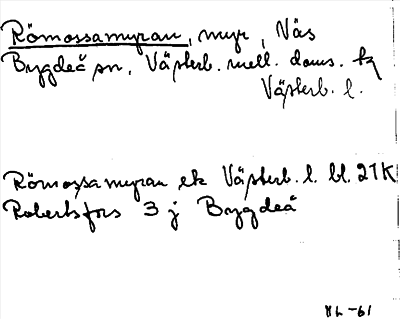 Römossamyran, myr, Nås
Bygdeå sn, Västerb. mell. doms. tg
Västerb. l.
Römossamyran ek Västerb. l. bl. 21K
Robertsfors 3 j Bygdeå